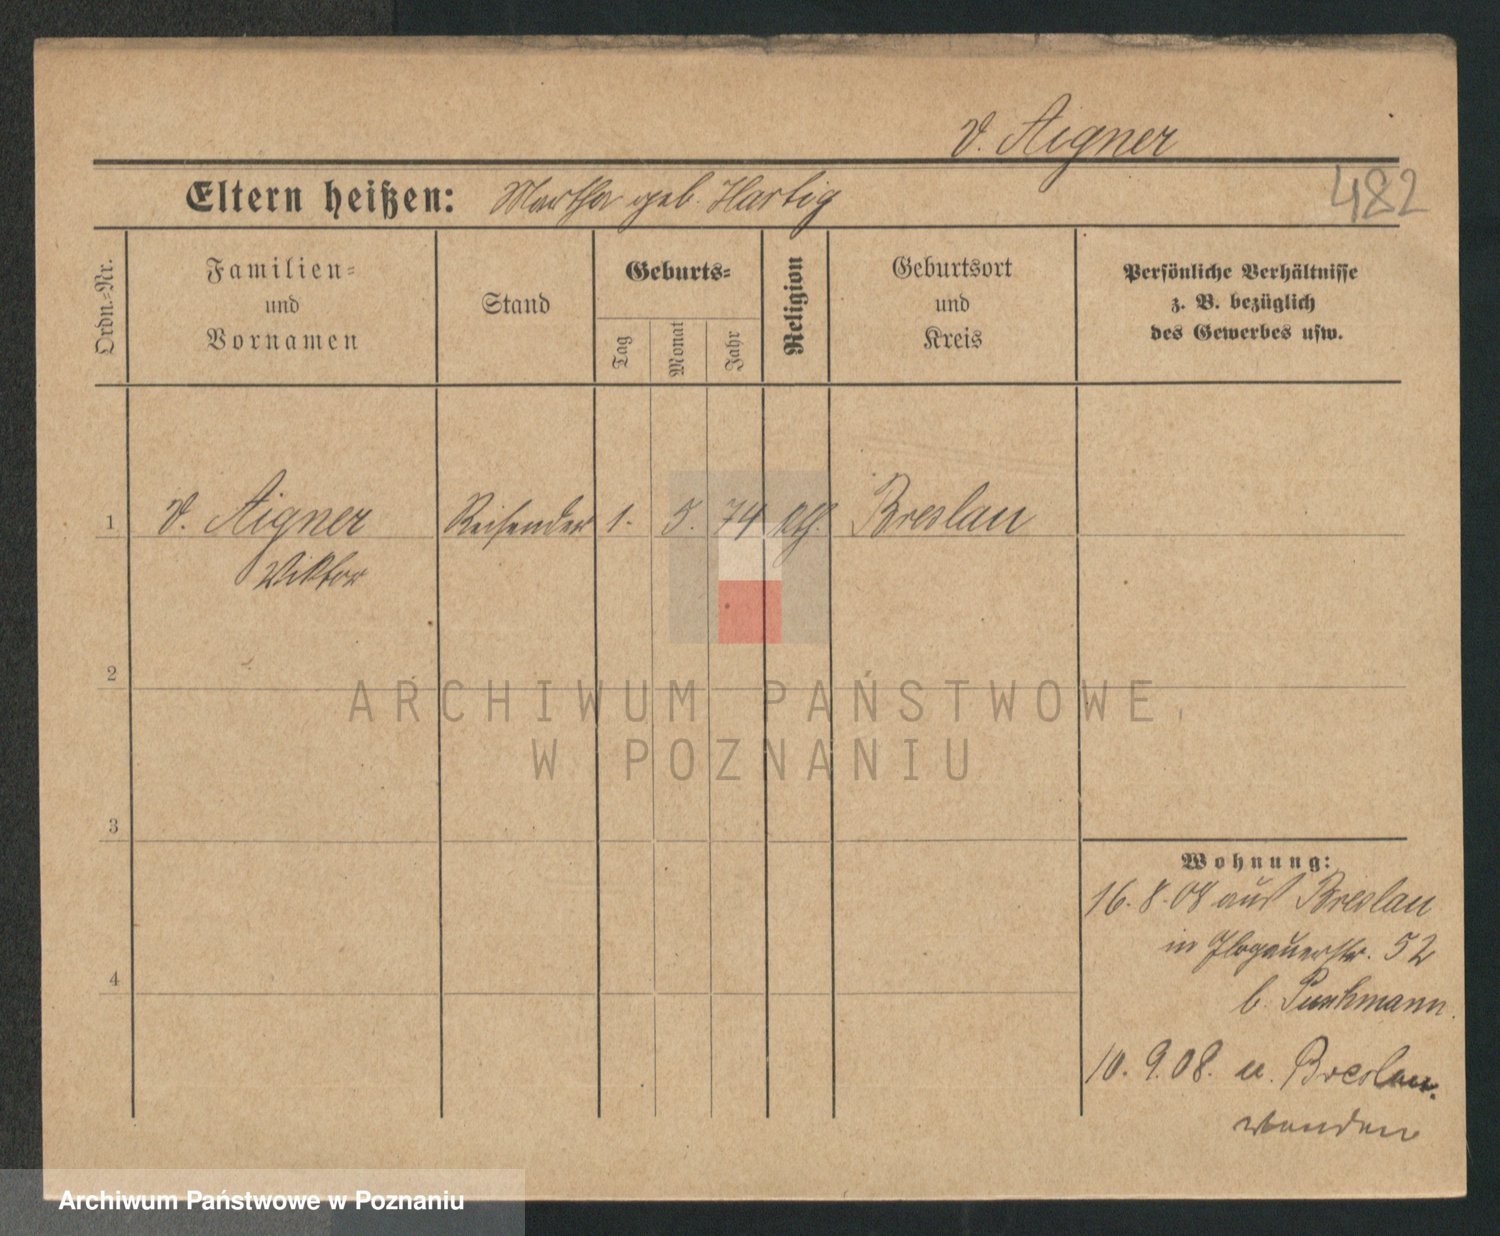 v. Aigner
482
Eltern heißen: Martha geb. Hartig
Ordn.=Nr.
Familien=
und
Vornamen
Stand
Geburts=
Tag
Monat
Jahr
Religion
Geburtsort
und
Kreis
Persönliche Verhältnisse
z. B. bezüglich
des Gewerbes usw.
1 v. Aigner Reisender 1. 5. 74 kth. Breslau
Viktor
2
ARCHIWUM PAŃSTWOWE
W POZNANIU
3
Wohnung:
16. 8. 08 aus Breslau
in Glogauerstr. 52
4
b.
10. 9. 08. n. Breslau.
wenden
Archiwum Państwowe w Poznaniu